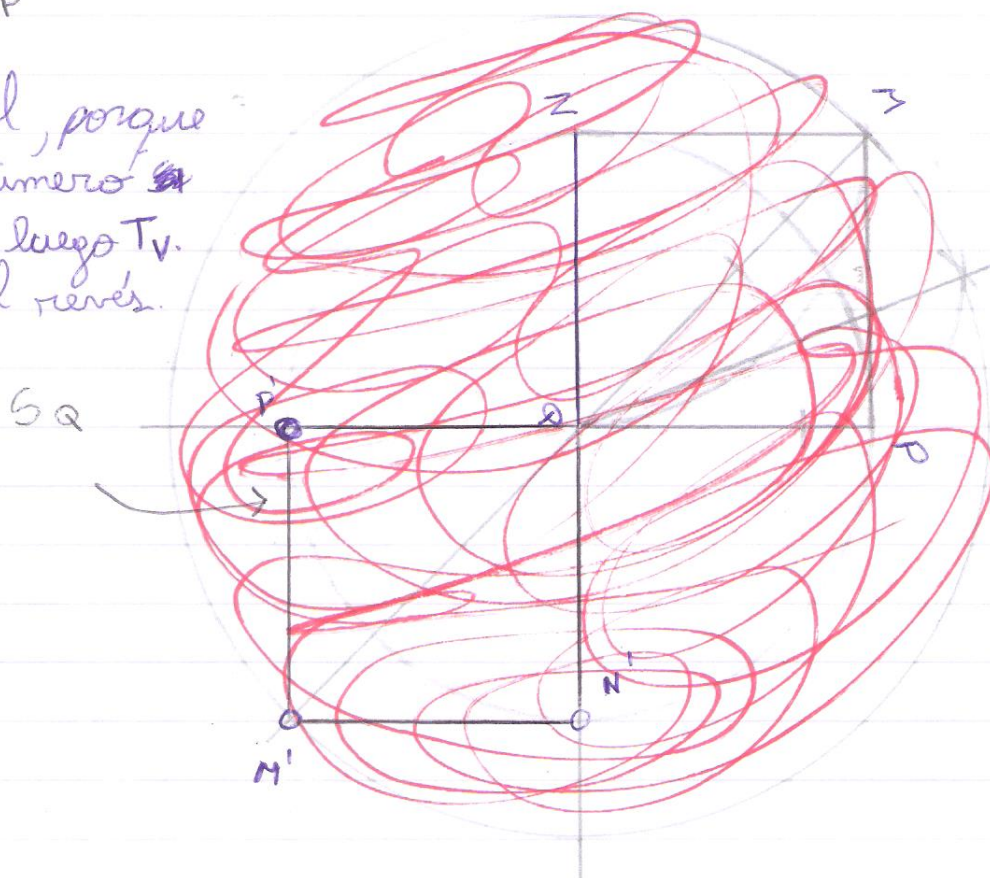 P
l, porque
úmero
luego Tv.
l revés.
N M
SQ P' Q P
N'
M'